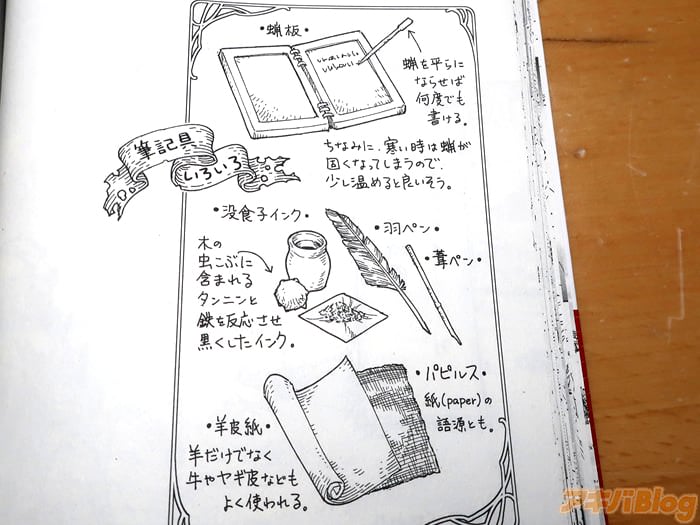 ・蝋板・
蝋を平らに
ならせば
何度でも
書ける。
ちなみに、寒い時は蝋が
固くなってしまうので、
少し温めると良いそう。
筆記具
いろいろ
・没食子インク・
・羽ペン・
・葦ペン・
木の
虫こぶに
含まれる
タンニンと
鉄を反応させ
黒くしたインク。
・パピルス・
紙(paper)の
語源とも。
・羊皮紙・
羊だけでなく
牛やヤギ皮なども
よく使われる。
アキバBlog